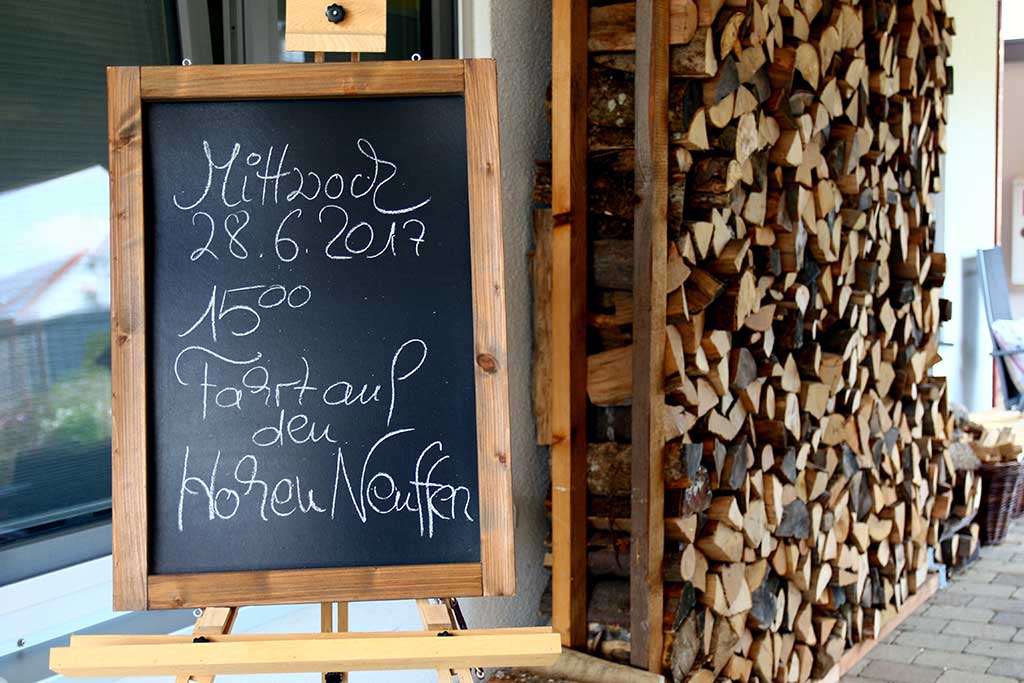 Mittwoch
28.6.2017
15⁰⁰
Fahrt auf
den
Hohen Neuffen